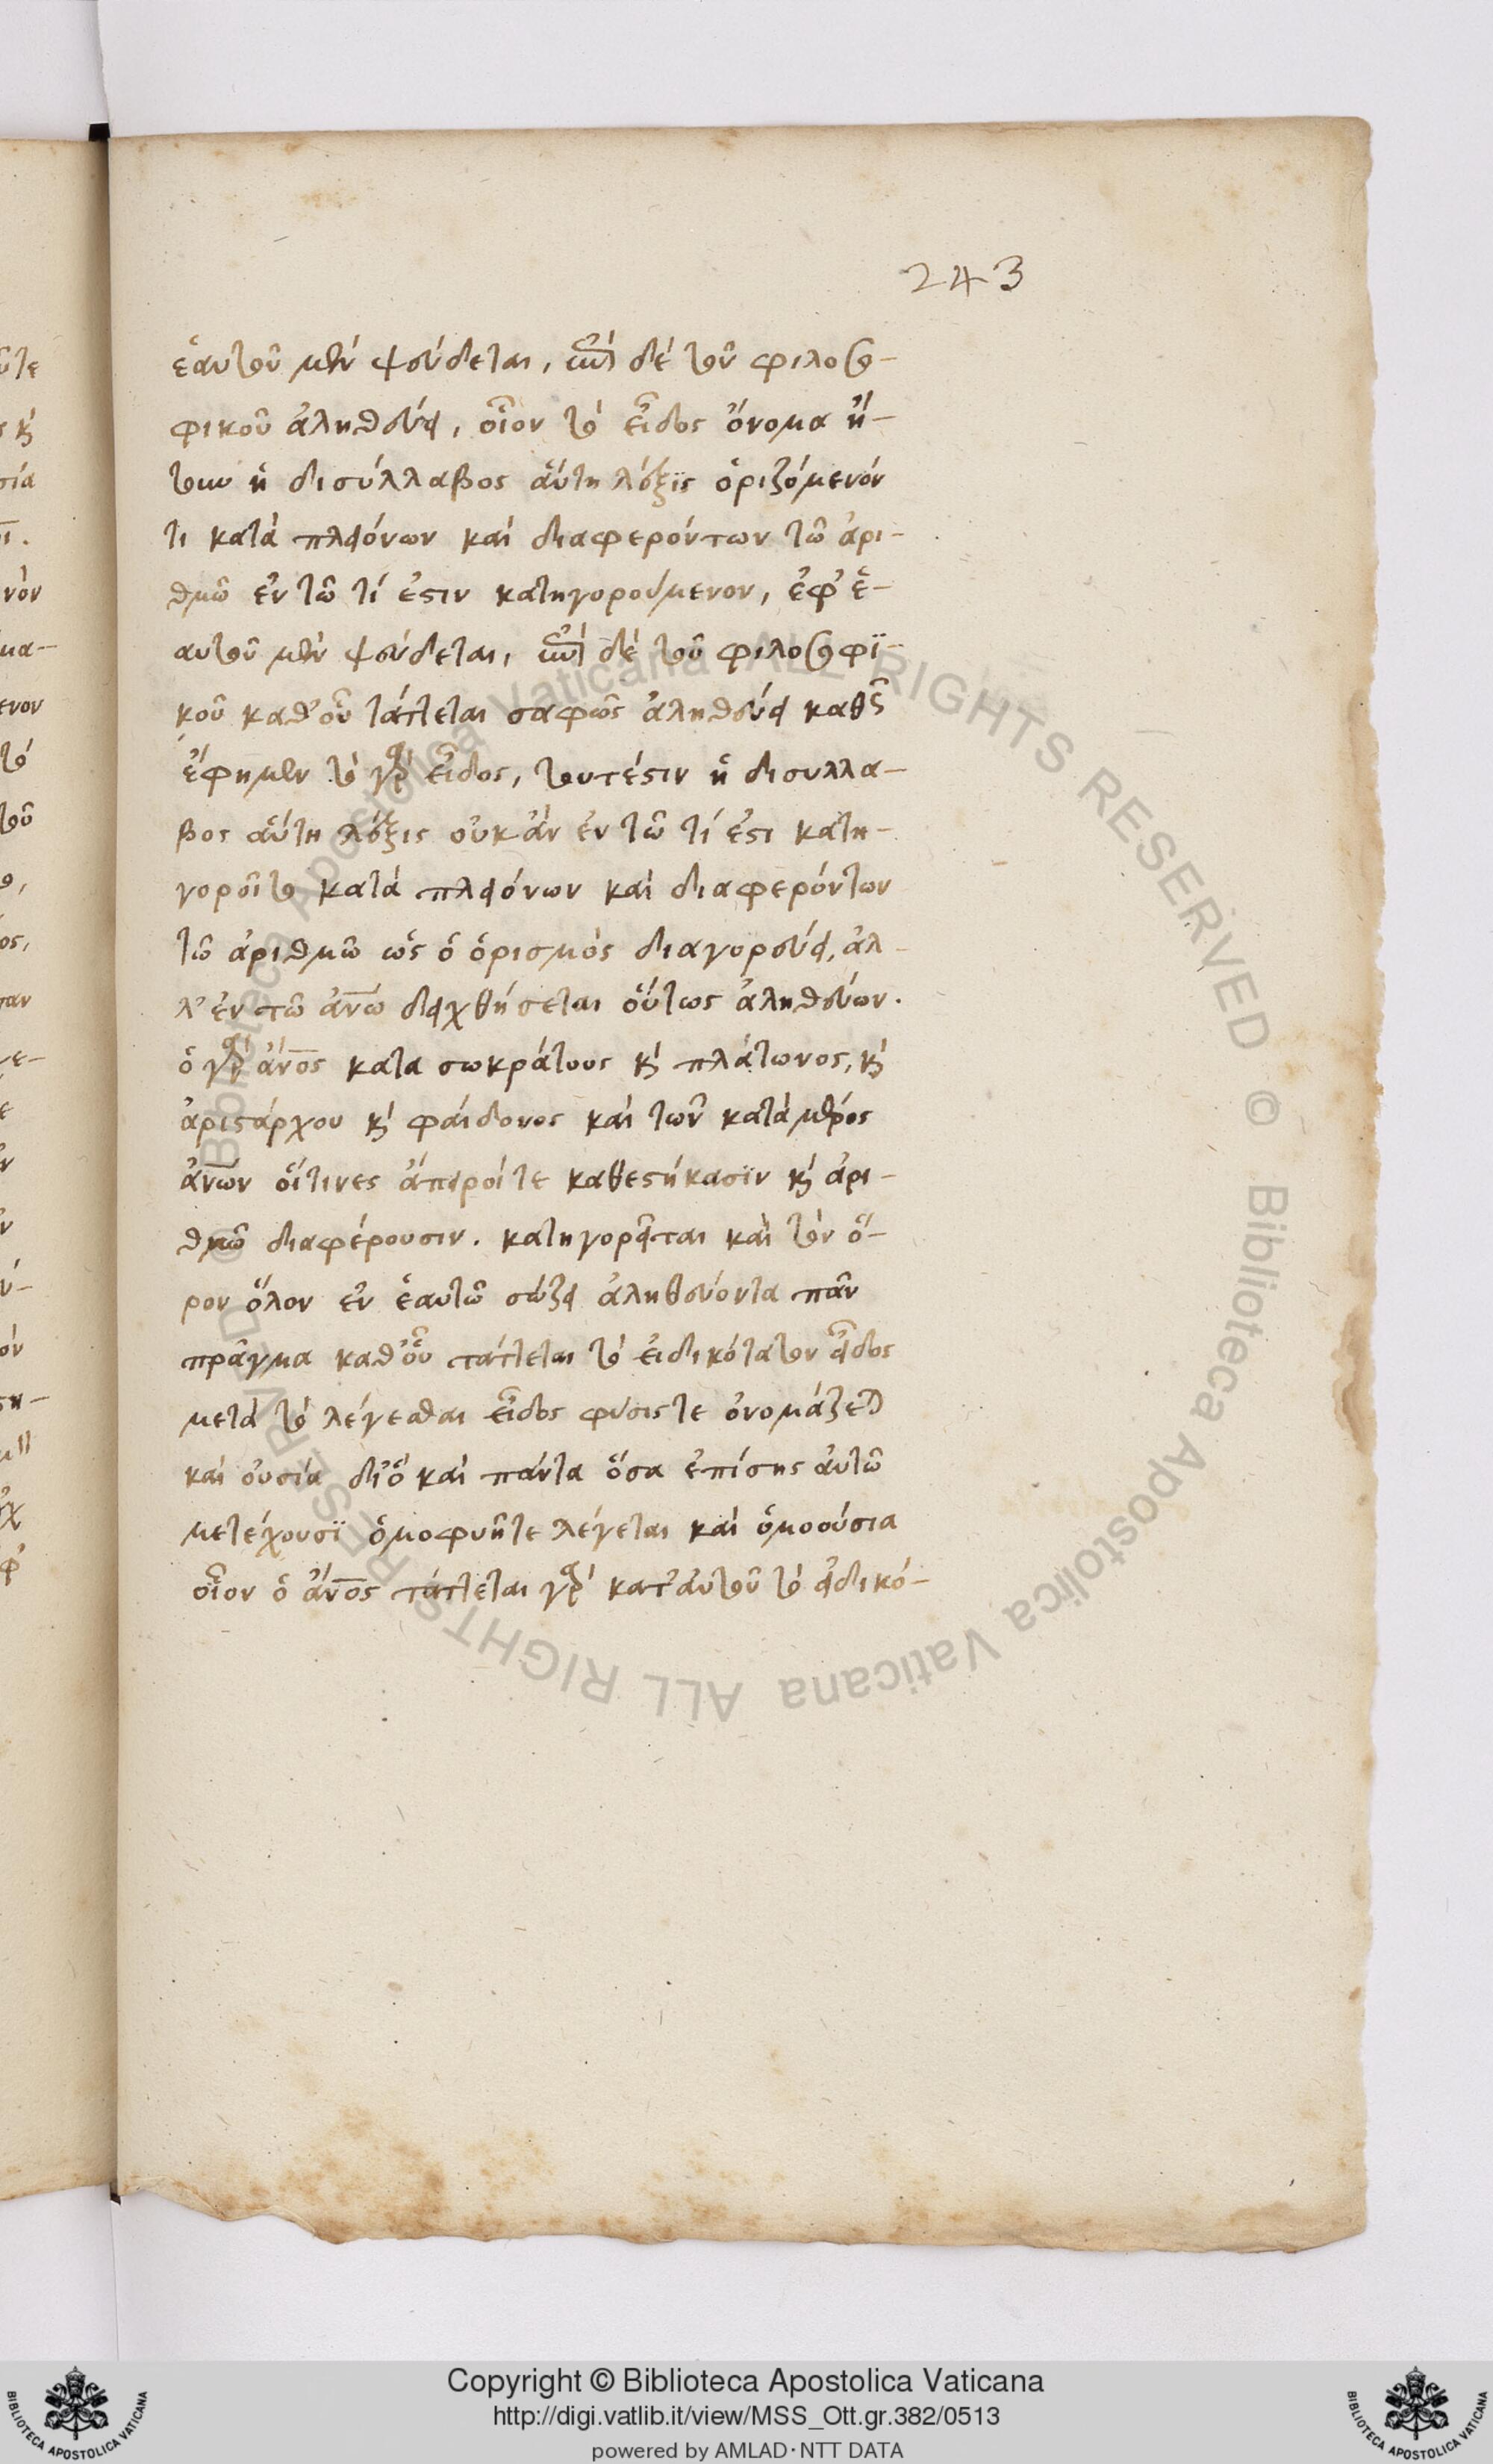 243
ἑαυτοῦ μὲν ψεύδεται, ἐπὶ δὲ τοῦ φιλοσο-
φικοῦ ἀληθεύει, οἷον τὸ εἶδος ὄνομα ἤ-
τουν ἡ δισύλλαβος αὕτη λέξϊς ὁριζόμενόν
τι κατὰ πλειόνων καὶ διαφερόντων τῶ ἀρι-
θμῶ ἐν τῶ τί ἐστιν κατηγορούμενον, ἐφ' ἑ-
αυτοῦ μὲν ψεύδεται, ἐπὶ δὲ τοῦ φιλοσοφϊ-
κοῦ καθ' οὗ τάττεται σαφῶς ἀληθεύει καθὼς
ἔφημεν τὸ γὰρ εἶδος, τουτέστιν ἡ δισυλλα-
βος αὕτη λέξις οὐκ ἂν ἐν τῶ τί ἐστι κατη-
γοροῖτο κατὰ πλειόνων καὶ διαφερόντων
τῶ ἀριθμῶ ὡς ὁ ὁρισμὸς διαγορεύει, ἀλ-
λ' ἐν τῶ ἀνω δειχθήσεται οὕτως ἀληθεύων.
ὁ γὰρ ἄνος κατα σωκράτους κὶ πλάτωνος, κὶ
ἀριστάρχου κὶ φαίδονος καὶ τῶν κατὰ μέρος
ἀνων οἵτινες ἄπειροί τε καθεστήκασϊν κὶ ἀρι-
θμῶ διαφέρουσιν. κατηγορεῖται καὶ τὸν ὅ-
ρον ὅλον ἐν ἑαυτῶ σώζει ἀληθεύοντα πᾶν
πρᾶγμα καθ' οὗ τάττεται τὸ εἰδικότατον εἶδος
μετὰ τὸ λέγεσθαι εἶδος φύσις τε ὀνομάζεται
καὶ οὐσία δι' ὃ καὶ πάντα ὅσα ἐπίσης αὐτῶ
μετέχουσϊ ὁμοφυῆ τε λέγεται καὶ ὁμοούσια
οἷον ὁ ἄνος τάττεται γὰρ κατ' αὐτοῦ τὸ εἰδικό-
Copyright © Biblioteca Apostolica Vaticana
http://digi.vatlib.it/view/MSS_Ott.gr.382/0513
powered by AMLAD·NTT DATA